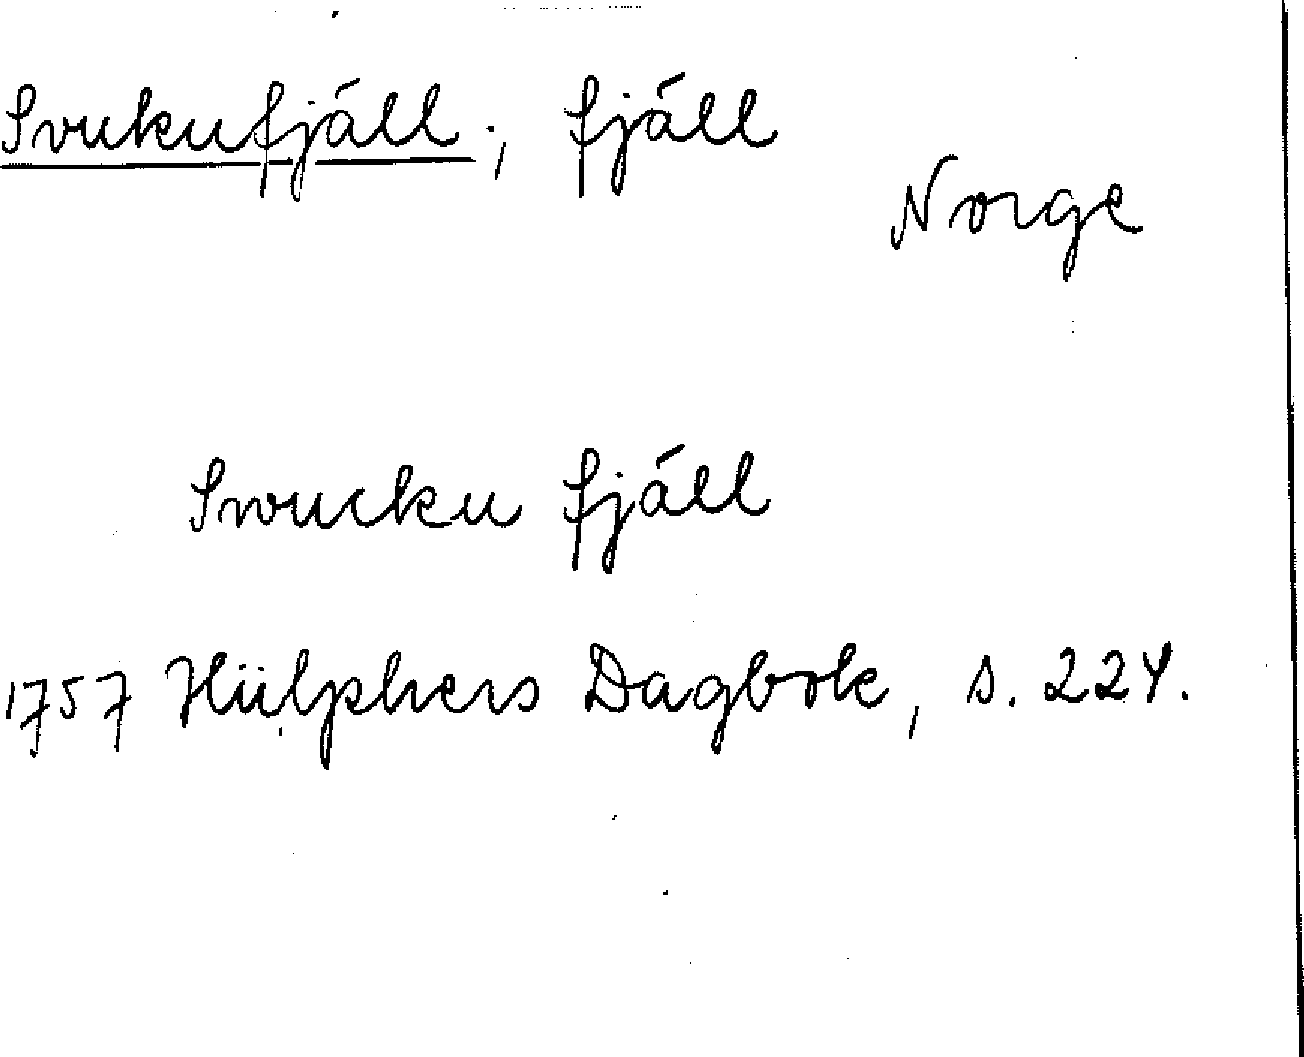 Svukufjäll; fjäll
Norge
Swucku fjäll
1757 Hülphers Dagbok, s. 224.